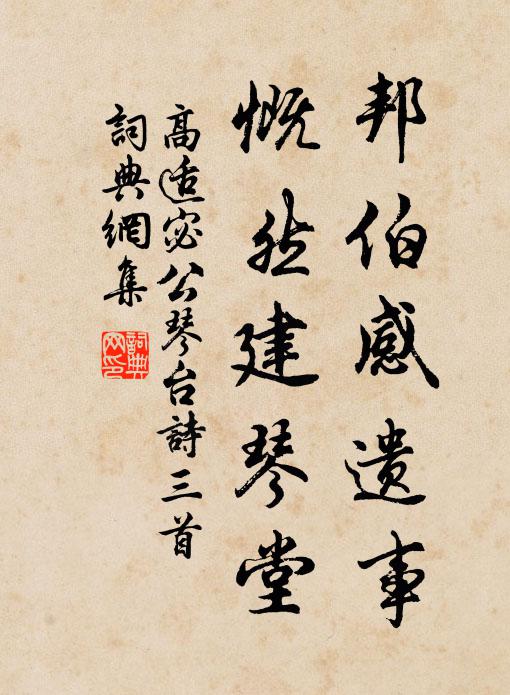 邦伯感遗事
慨然建琴堂
高适宓公琴台詩三首
詞典網集
詞典網印